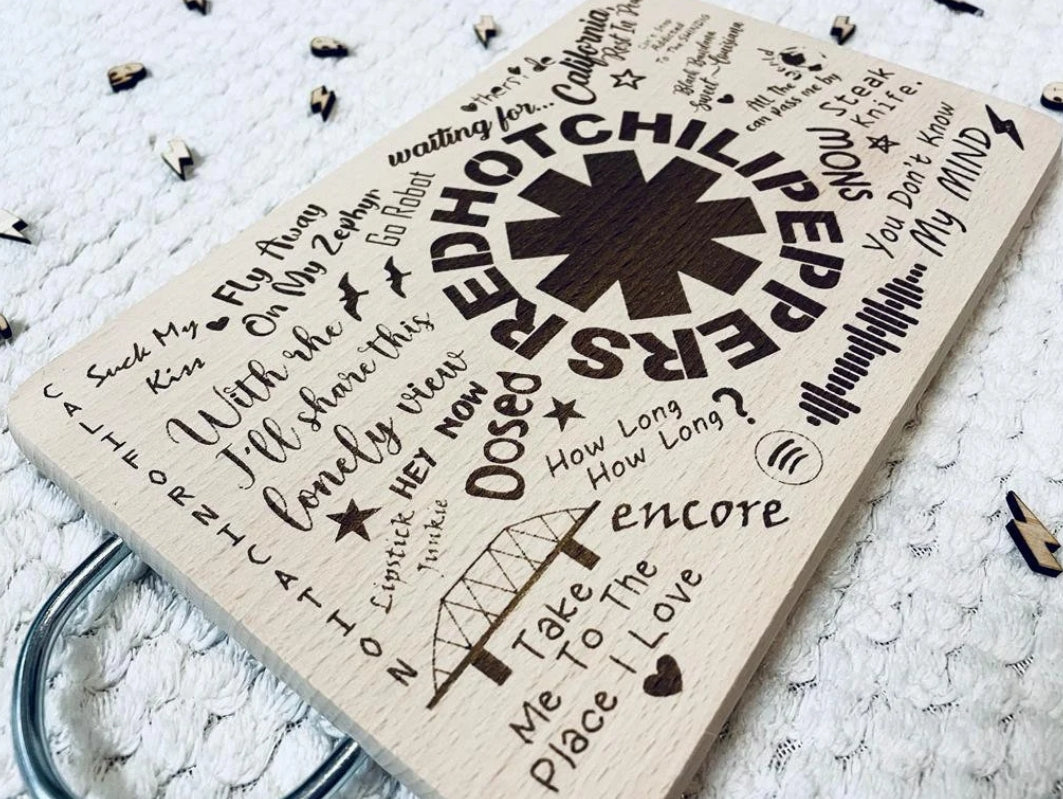 California,
Rest In
waiting for...
Can't Stop
Addicted
To The Shindig
Black Bandana
Sweet Louisiana
All The
can pass me by
Steak
Knife.
SNOW
You Don't Know
My MIND
Go Robot
Fly Away
On My Zephyr
Suck My
Kiss
RED HOT CHILI PEPPERS
With the
I'll share this
lonely view
HEY NOW
Dosed
How Long
How Long?
CALIFORNICATION
Lipstick
Junkie
encore
Take
Me To The
Place I Love